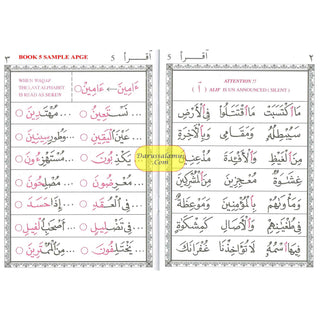 ٢ اقرأ 5
ATTENTION !!
( أ ) ALIF IS UN ANNOUNCED (SILENT)
مَااكْتَسَبَتْ مَااقْتَتَلُوا فِي الْأَرْضِ
وَمَقَامِي وَبِالْآخِرَةِ
مِنَ الْغَيْظِ وَالْأَفْئِدَةَ
غِشَاوَةٌ مُعْجِزِينَ مِنَ الْمُشْرِكِينَ
بِالْمُؤْمِنِينَ وَمَوْعِظَةً
فِي طُغْيَانِهِمْ وَالْآصَالِ كَمِشْكَاةٍ
فِيهَا اسْمُهُ لَا تُؤَاخِذْنَا غُفْرَانَكَ
5 اقرأ ٣
BOOK 5 SAMPLE APGE
WHEN WAQAF
THE LAST ALPHABET
IS READ AS SUKUN
عَامِينَ ← عَامِينْ
نَسْتَعِينُ ... مُهْتَدِينَ
عَيْنَ الْيَقِينِ وَطُورِ سِينِينَ
يَكْذِبُونَ ... مُسْتَهْزِءُونَ
مُعْرِضُونَ ... مُصْلِحُونَ
فِي الْعُقَدِ ... إِذَا حَسَدَ
فِي تَضْلِيلٍ ... أَصْحَابِ الْفِيلِ
يَخْتَلِفُونَ ... مِنَ الْمُمْتَرِينَ
Darussalamuk
.Com